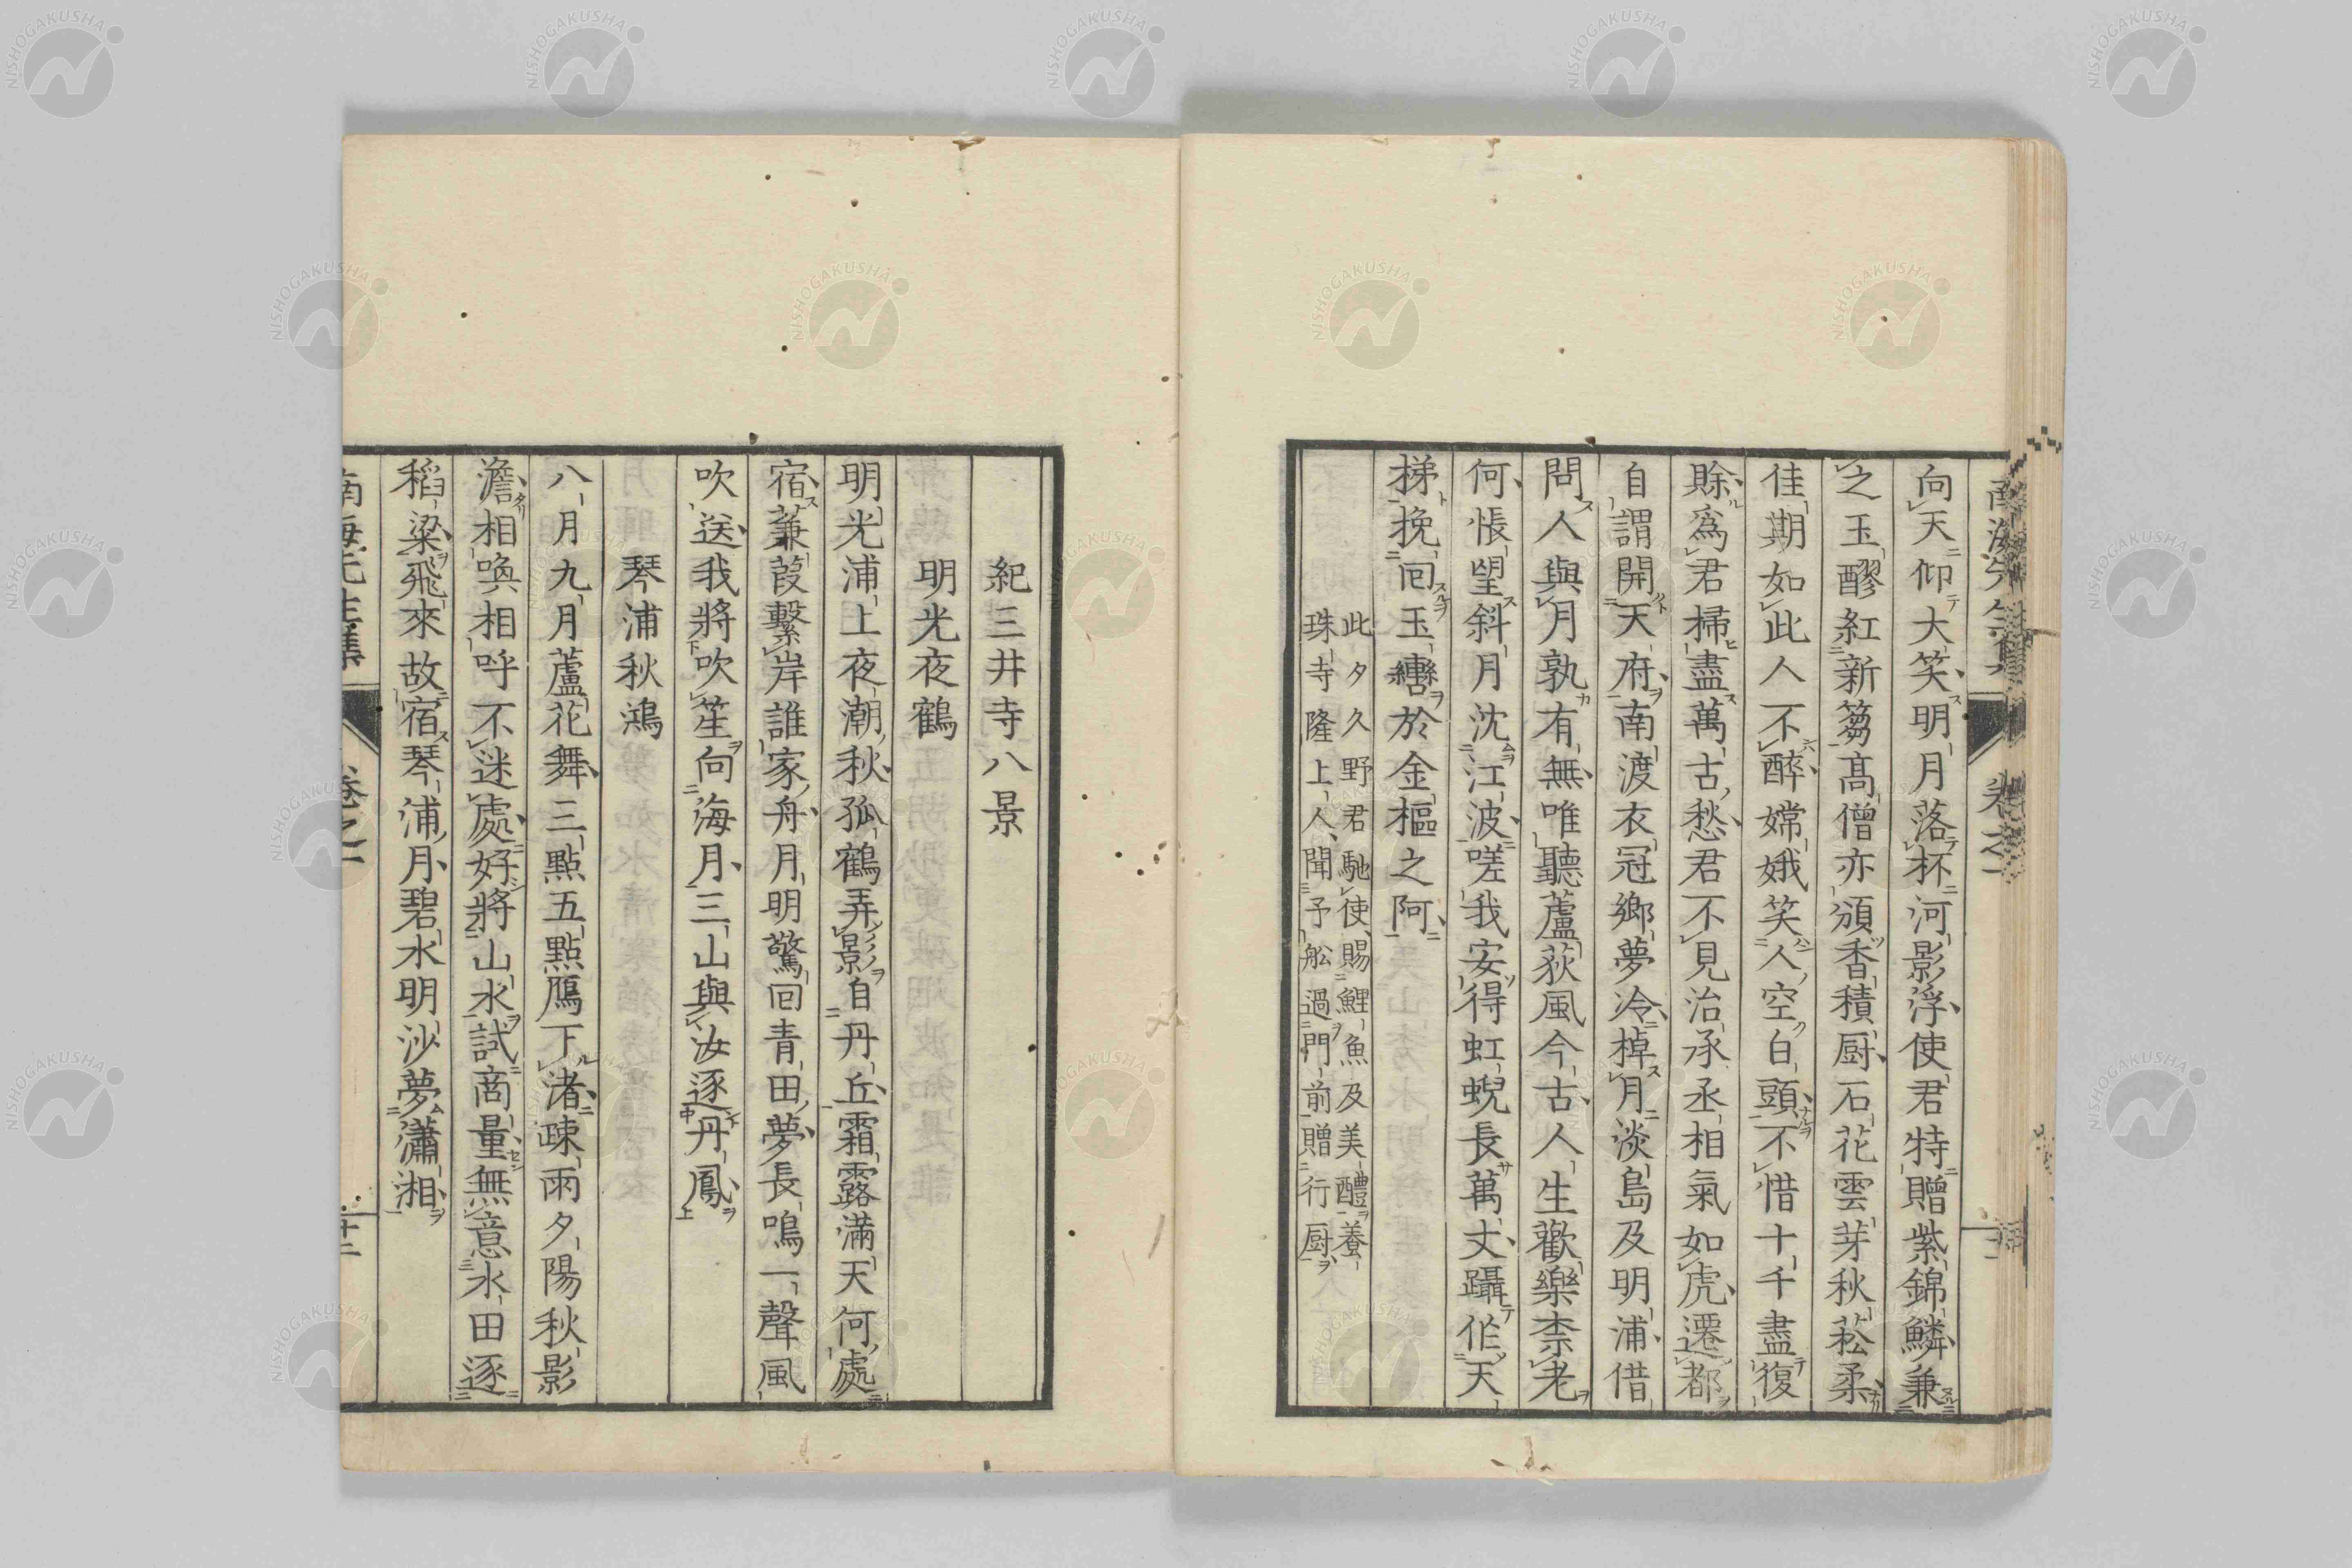 南海先生集 卷之一
向天仰大笑明月落杯河影浮使君特贈紫錦鱗兼
之玉醪紅新篘髙僧亦頒香積厨石花雲芽秋菘柔
佳期如此人不醉嫦娥笑人空白頭不惜十千盡復
賖爲君掃盡萬古愁君不見治承丞相氣如虎遷都
自謂開天府南渡衣冠鄉夢冷棹月淡島及明浦借
問人與月孰有無唯聽蘆荻風今古人生歡樂柰老
何悵望斜月沈江波嗟我安得虹蜺長萬丈躡作天
梯挽回玉轡於金樞之阿
此夕久野君馳使賜鯉魚及美醴養
珠寺隆上人聞予舩過門前贈行厨
紀三井寺八景
明光夜鶴
明光浦上夜潮秋孤鶴弄影自丹丘霜露滿天何處
宿蒹葭繫岸誰家舟月明驚回青田夢長鳴一聲風
吹送我將吹笙向海月三山與汝逐丹鳳
琴浦秋鴻
八月九月蘆花舞三點五點鴈下渚疎雨夕陽秋影
澹相喚相呼不迷處好將山水試商量無意水田逐
稻粱飛來故宿琴浦月碧水明沙夢瀟湘
南海先生集 卷之一 十二
NISHOGAKUSHA